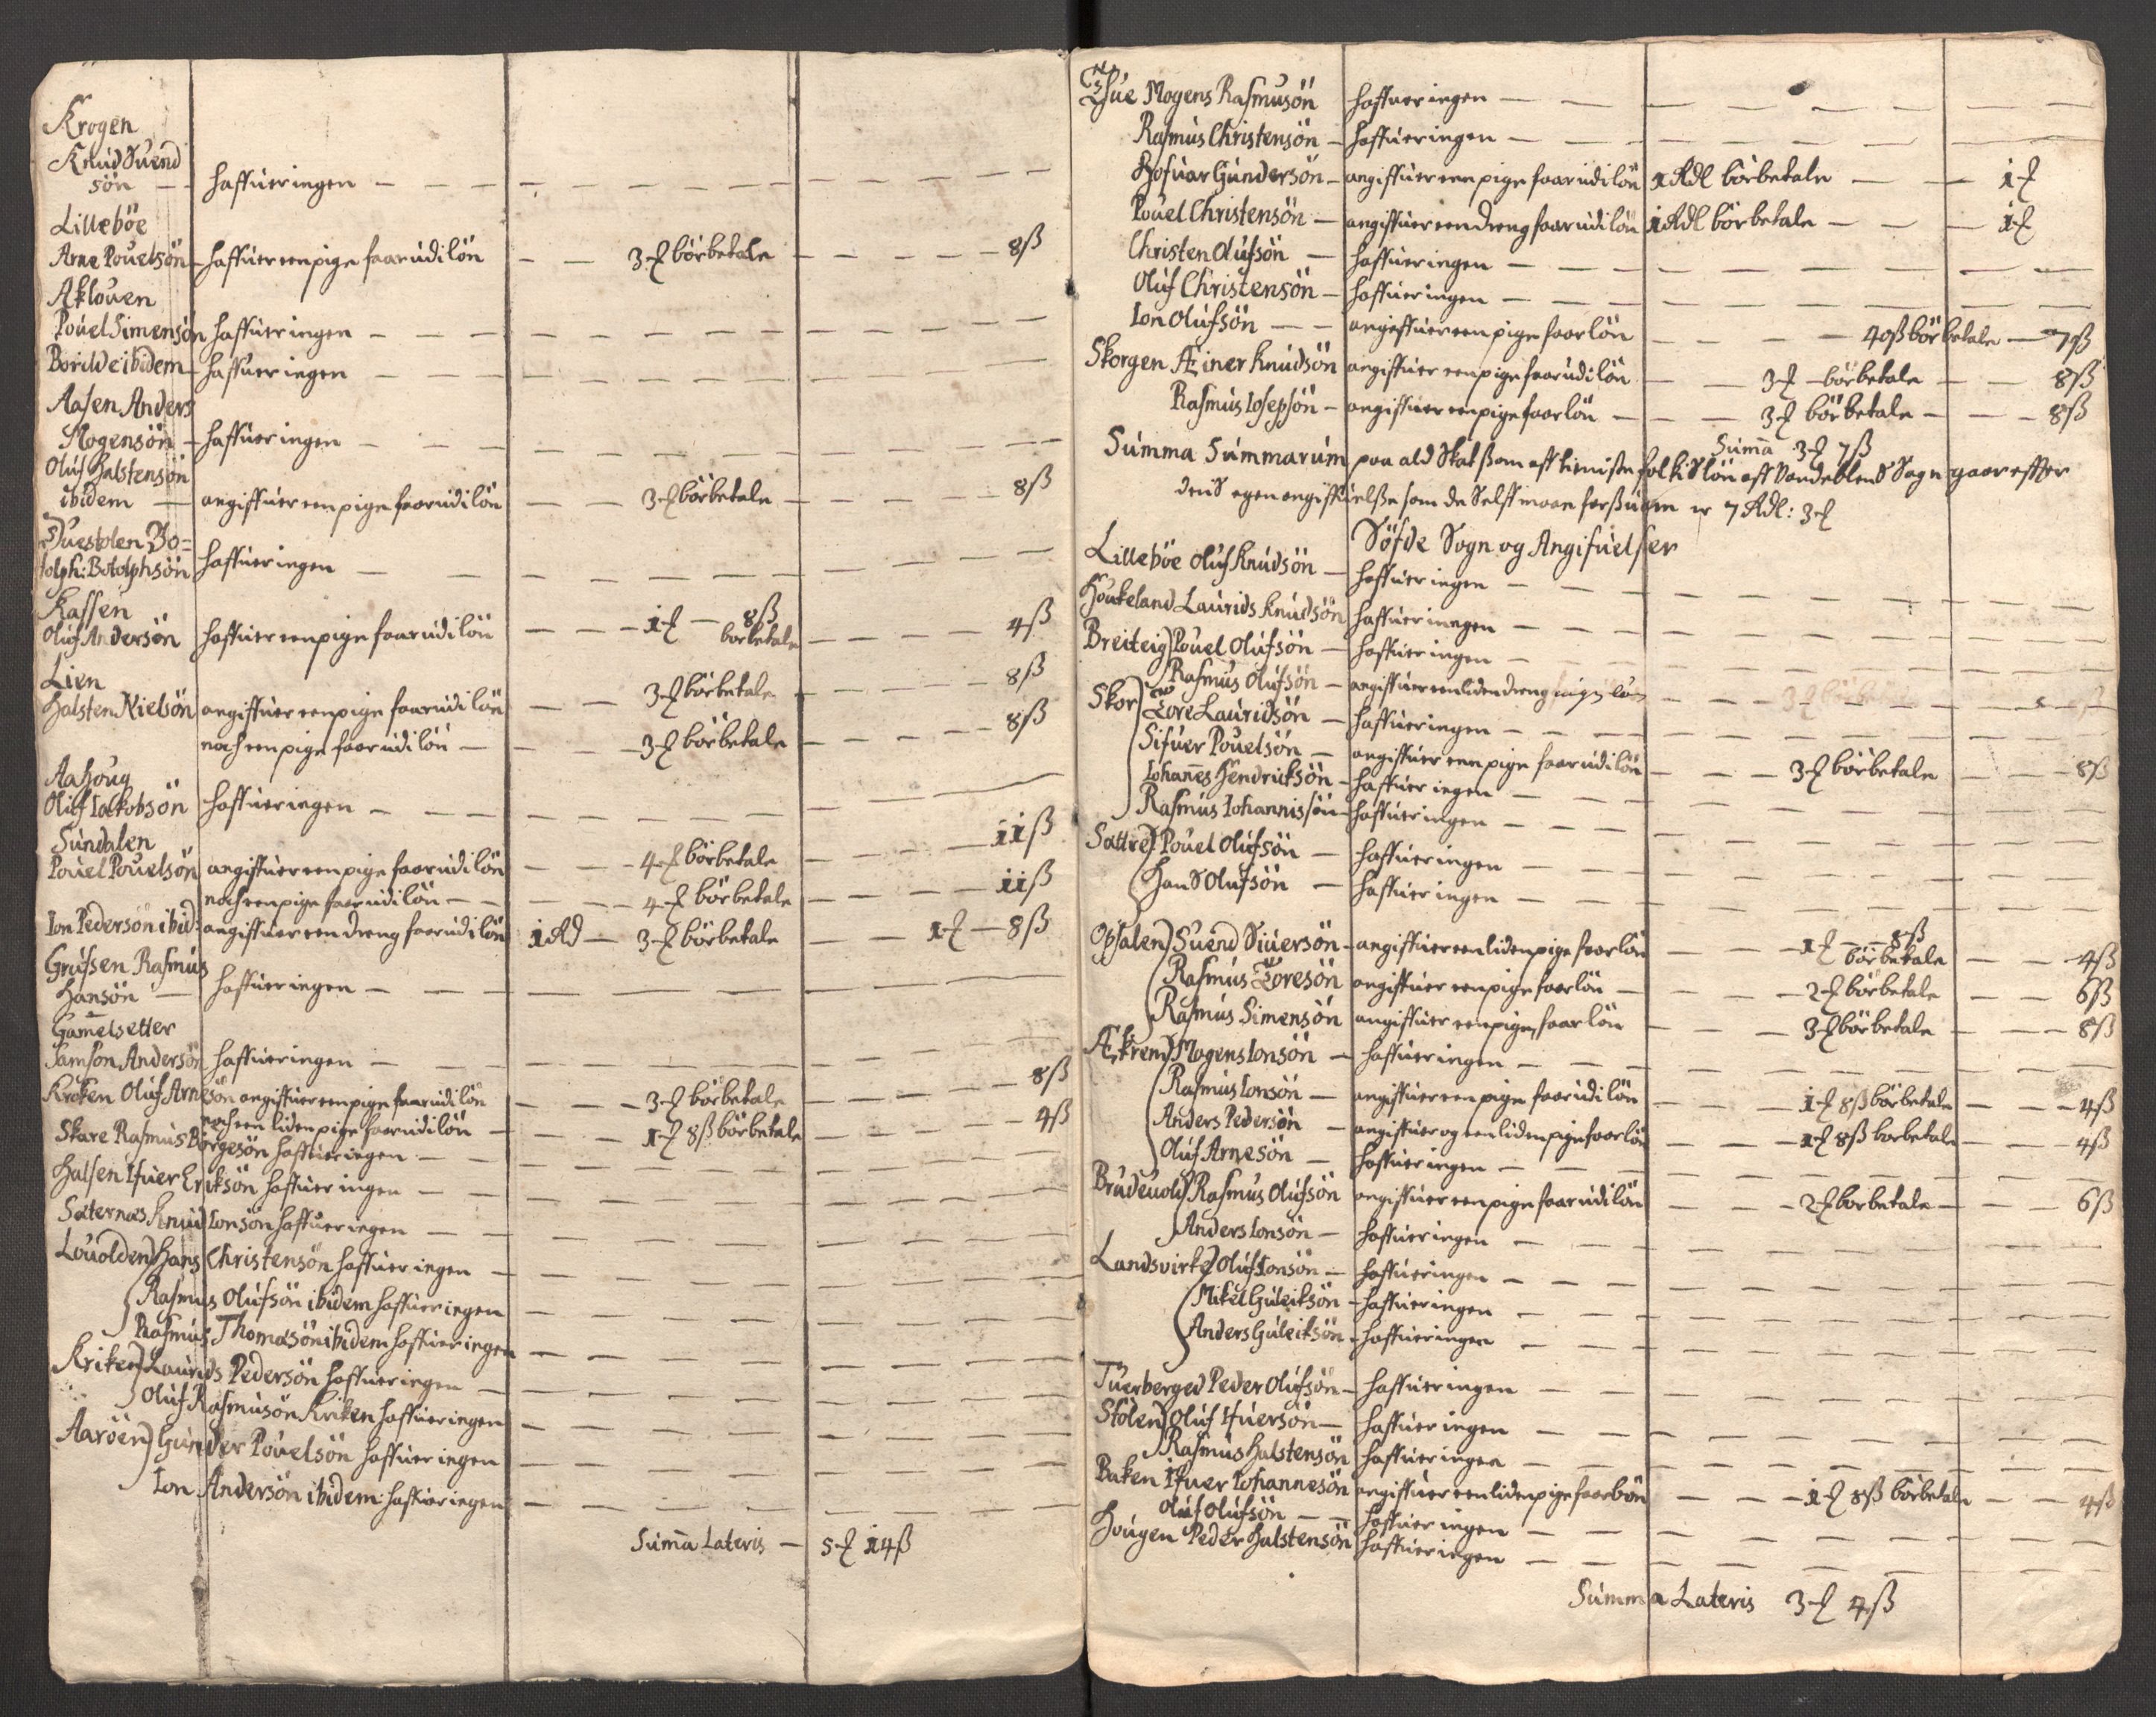 Krogen
Knud Suend
sön — haffuer ingen
Lilleböe
Arne Pouelsön haffuer een pige faar udi lön — 3 ₰ börbetale — 8 ß
Aklouen
Pouel Simensön haffuer ingen
Borilde ibidem haffuer ingen
Aasen Anders
Mogensön haffuer ingen
Oluf Halstensön
ibidem — angiffuer een pige faar udi lön — 3 ₰ börbetale — 8 ß
Duestolen Bo=
tolph: Botolphsön haffuer ingen
Kassen
Oluf Andersön haffuer een pige faar udi lön — 1 ₰ — 8 ß börbetale — 4 ß
Lien
Halsten Nielsön angiffuer een pige faar udi lön — 3 ₰ börbetale — 8 ß
noch een pige faar udi lön — 3 ₰ börbetale — 8 ß
Aahoug
Oluf Iackobsön haffuer ingen
Sundalen
Pouel Pouelsön angiffuer een pige faar udi lön — 4 ₰ börbetale — 11 ß
noch een pige faar udi lön — 4 ₰ börbetale — 11 ß
Ion Pedersön ibid: angiffuer een dreng faar udi lön 1 Rd — 3 ₰ börbetale — 1 ₰ — 8 ß
Grufsen Rasmus
Hansön — haffuer ingen
Gamelsetter
Samson Andersön haffuer ingen
Kroken Oluf Arnesön angiffuer een pige faar udi lön — 3 ₰ börbetale — 8 ß
noch een liden pige faar udi lön — 1 ₰ 8 ß börbetale — 4 ß
Skare Rasmus Börgesön haffuer ingen
Halsen Ifuer Eriksön haffuer ingen
Säternæs Knud Ionsön haffuer ingen
Louolden Hans Christensön haffuer ingen
Rasmus Olufsön ibidem haffuer ingen
Rasmus Thomasön ibidem haffuer ingen
Kriken Laurids Pedersön haffuer ingen
Oluf Rasmusön Kriken haffuer ingen
Aaröen Gunder Pouelsön haffuer ingen
Ion Andersön ibidem haffuer ingen
Summa Lateris — 5 ₰ 14 ß
Hue Mogens Rasmusön haffuer ingen
Rasmus Christensön — haffuer ingen
Hofuar Gundersön — angiffuer een pige faar udi lön 1 Rdl börbetale — 1 ₰
Pouel Christensön — angiffuer een dreng faar udi lön 1 Rdl börbetale — 1 ₰
Christen Olufsön — haffuer ingen
Oluf Christensön — haffuer ingen
Ion Olufsön — angiffuer een pige faar lön — 40 ß börbetale — 7 ß
Skorgen Æiner Knudsön angiffuer een pige faar udi lön — 3 ₰ börbetale — 8 ß
Rasmus Iosepsön — angiffuer een pige faar lön — 3 ₰ börbetale — 8 ß
Summa 3 ₰ 7 ß
Summa Summarum paa ald Skat som aff tieniste folkis lön aff Vandeblens Sogn gaar effter
dens egen angiffuelse som de Selff maae forsuare er 7 Rdl: 3 ₰
Söfde Sogn og Angifuelser
Lilleböe Oluf Knudsön — haffuer ingen
Houkeland Laurids Knudsön haffuer inegen
Breiteig Pouel Olufsön — haffuer ingen
Rasmus Olufsön — angiffuer een liden dreng ingen lön
Skor Tore Lauridsön — haffuer ingen
Sifuer Pouelsön — angiffuer een pige faar udi lön — 3 ₰ börbetale — 8 ß
Iohannes Hendricksön — haffuer ingen
Rasmus Iohannissön haffuer ingen
Sættre Pouel Olufsön — haffuer ingen
Hans Olufsön — haffuer ingen
Opsalen Suend Siuersön — angiffuer een liden pige faar lön — 1 ₰ — 8 ß börbetale — 4 ß
Rasmus Toresön angiffuer een pige faar lön — 2 ₰ börbetale — 6 ß
Rasmus Simensön angiffuer een pige faar lön — 3 ₰ börbetale — 8 ß
Æskrem Mogens Ionsön — haffuer ingen
Rasmus Ionsön — angiffuer een pige faar udi lön — 1 ₰ 8 ß börbetale — 4 ß
Anders Pedersön — angiffuer og een liden pige faar lön — 1 ₰ 8 ß börbetale — 4 ß
Oluf Arnesön — haffuer ingen
Brudeuold Rasmus Olufsön angiffuer een pige faar udi lön — 2 ₰ börbetale — 6 ß
Anders Ionsön — haffuer ingen
Landsvirke Oluf Ionsön — haffuer ingen
Mikel Guleiksön — haffuer ingen
Anders Guleiksön — haffuer ingen
Tuerberged Peder Olufsön — haffuer ingen
Stölen Oluf Ifuersön — haffuer ingen
Rasmus Halstensön haffuer ingen
Baken Ifuer Iohannesön angiffuer een liden pige faar lön — 1 ₰ 8 ß börbetale — 4 ß
Oluf Olufsön — haffuer ingen
Hougen Peder Halstensön haffuer ingen
Summa Lateris 3 ₰ 4 ß